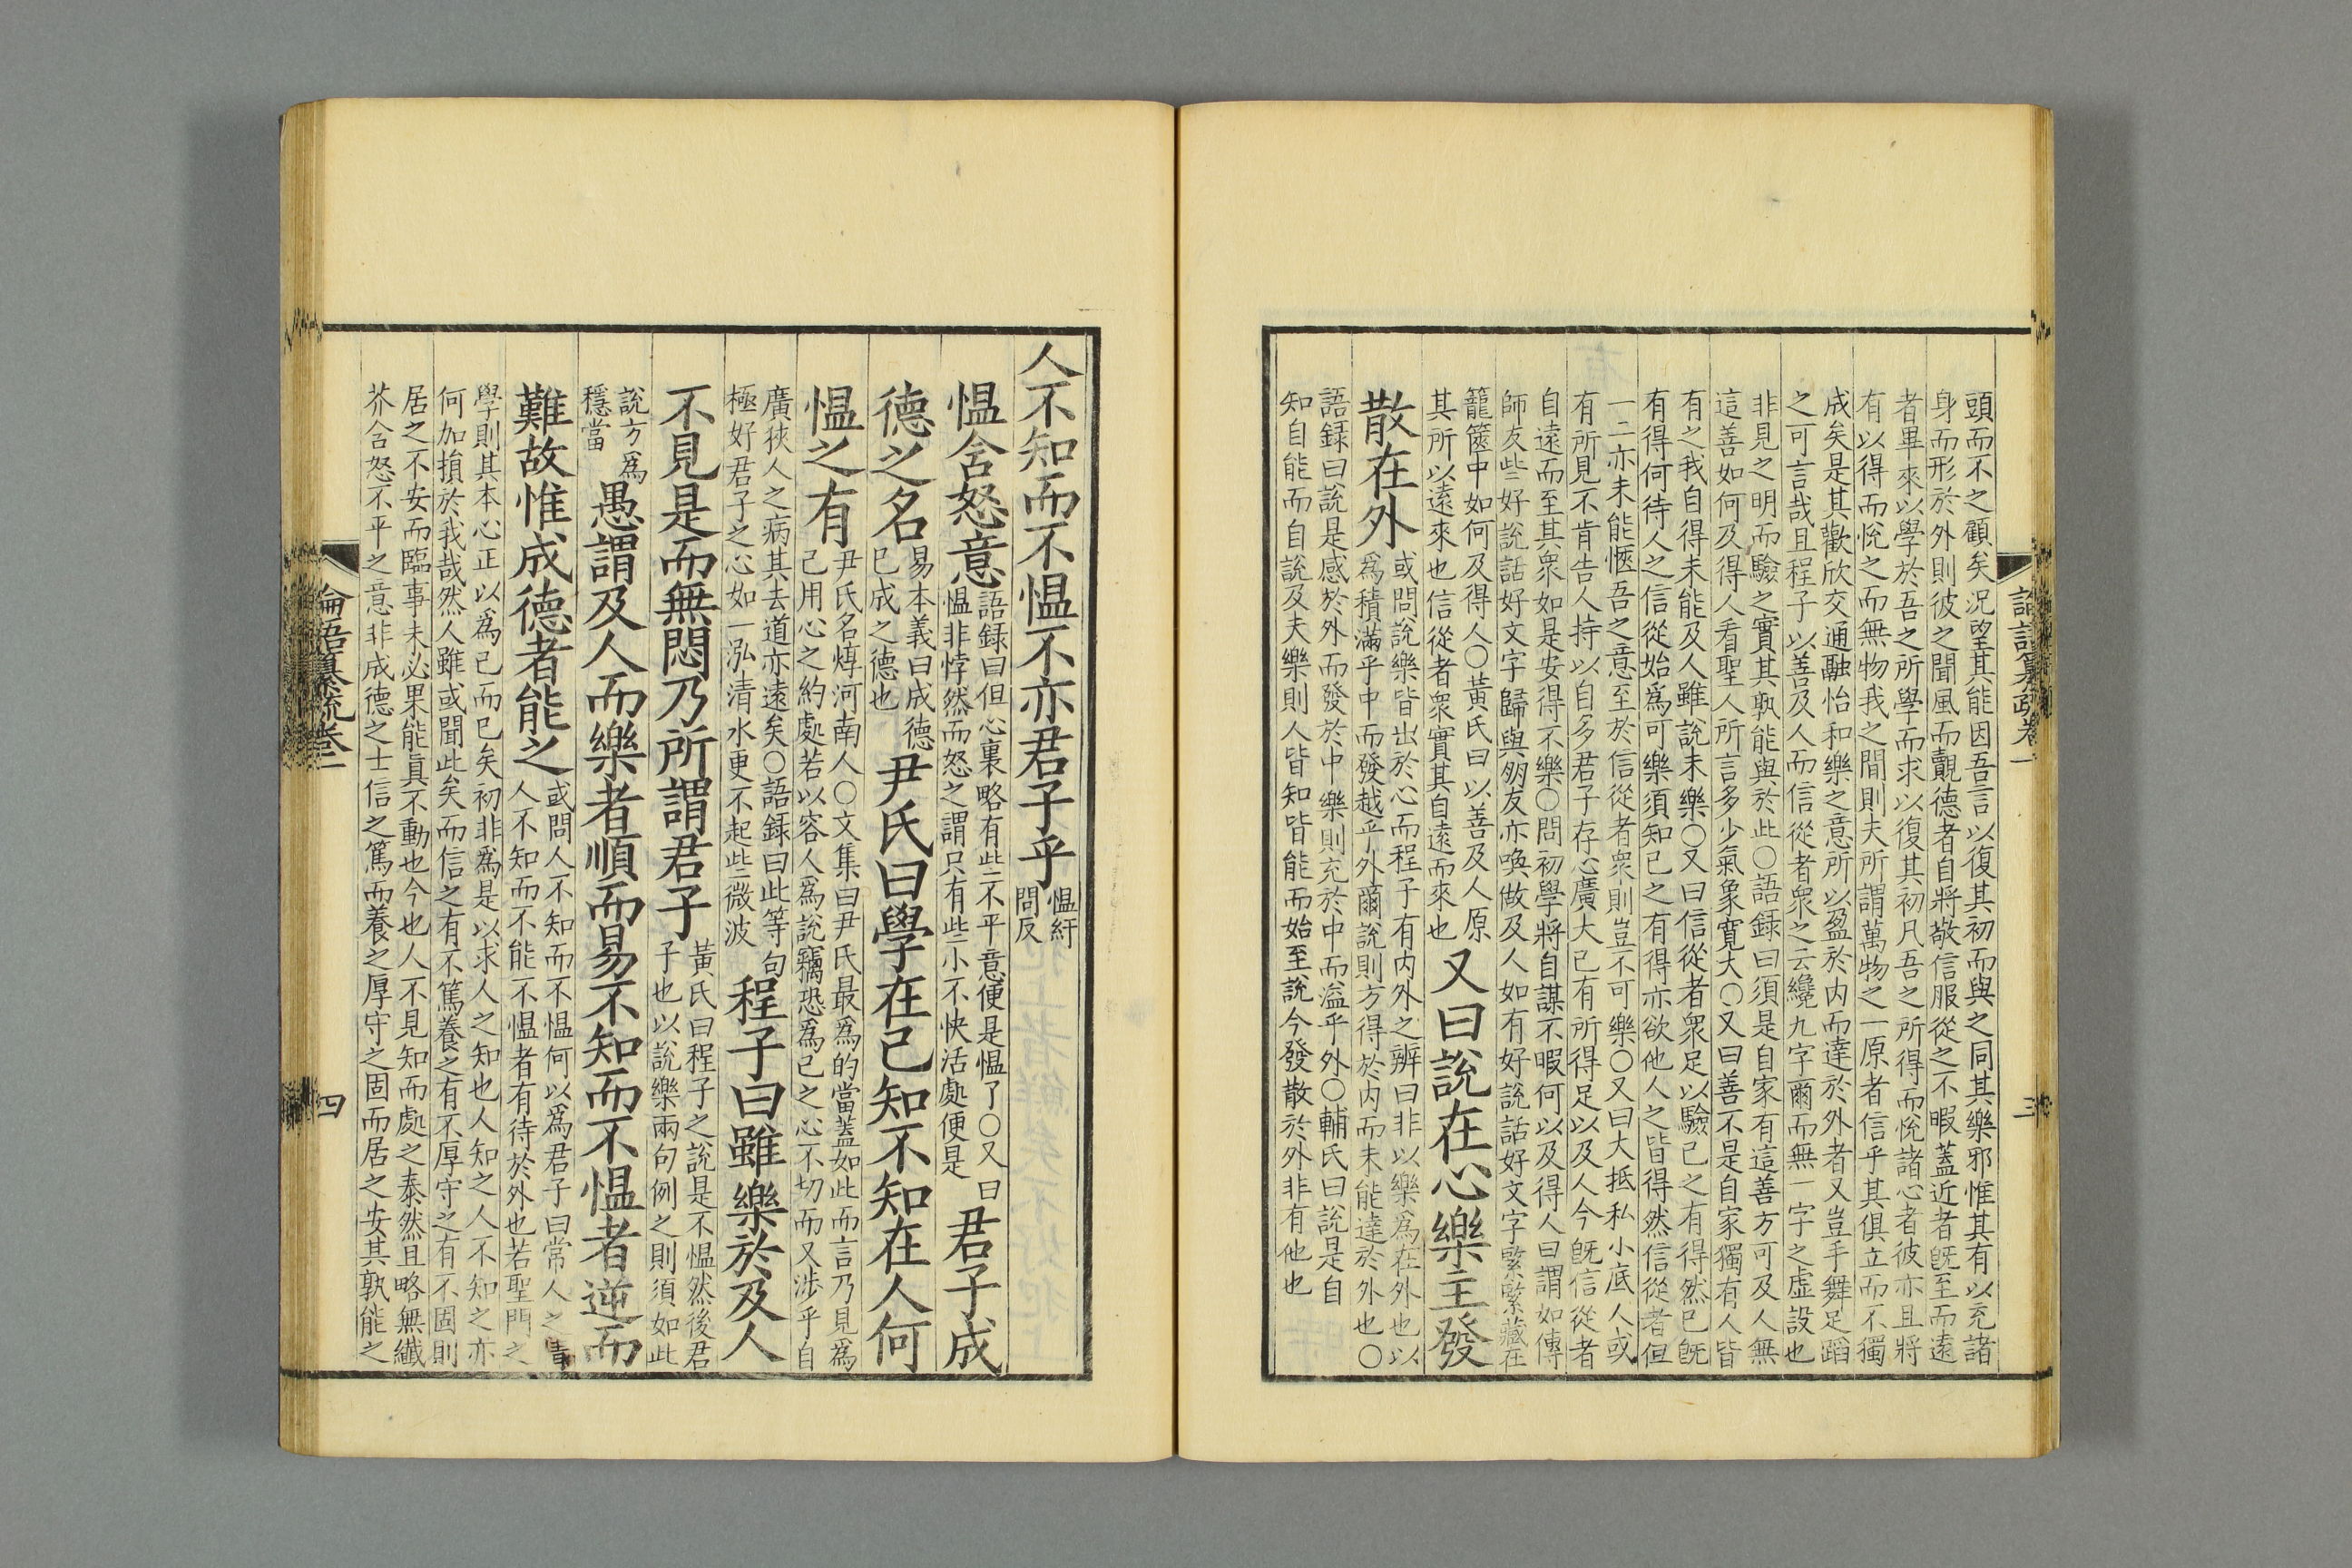 頭而不之顧矣況望其能因吾言以復其初而與之同其樂邪惟其有以充諸
身而形於外則彼之聞風而覿德者自將敬信服從之不暇蓋近者旣至而遠
者畢來以學於吾之所學而求以復其初凡吾之所得而悅諸心者彼亦且將
有以得而悅之而無物我之間則夫所謂萬物之一原者信乎其俱立而不獨
成矣是其歡欣交通融怡和樂之意所以盈於內而達於外者又豈手舞足蹈
之可言哉且程子以善及人而信從者衆之云纔九字爾而無一字之虛設也
非見之明而驗之實其孰能與於此○語録曰須是自家有這善方可及人無
這善如何及得人看聖人所言多少氣象寬大○又曰善不是自家獨有人皆
有之我自得未能及人雖說未樂○又曰信從者衆足以驗己之有得然已旣
有得何待人之信從始爲可樂須知己之有得亦欲他人之皆得然信從者但
一二亦未能愜吾之意至於信從者衆則豈不可樂○又曰大抵私小底人或
有所見不肯告人持以自多君子存心廣大己有所得足以及人今旣信從者
自遠而至其衆如是安得不樂○問初學將自謀不暇何以及得人曰謂如傳
師友些好說話好文字歸與朋友亦喚做及人如有好說話好文字緊緊藏在
籠篋中如何及得人○黃氏曰以善及人原
其所以遠來也信從者衆實其自遠而來也
又曰說在心樂主發
散在外
或問說樂皆出於心而程子有內外之辨曰非以樂爲在外也以
爲積滿乎中而發越乎外爾說則方得於內而未能達於外也○
語録曰說是感於外而發於中樂則充於中而溢乎外○輔氏曰說是自
知自能而自說及夫樂則人皆知皆能而始至說今發散於外非有他也
論語纂疏卷一
三
人不知而不慍不亦君子乎
慍紆
問反
慍含怒意
語録曰但心裏略有些不平意便是慍了○又曰
慍非悖然而怒之謂只有些小不快活處便是
君子成
德之名
易本義曰成德
已成之德也
尹氏曰學在己知不知在人何
慍之有
尹氏名焞河南人○文集曰尹氏最爲的當蓋如此而言乃見爲
己用心之約處若以容人爲說竊恐爲己之心不切而又涉乎自
廣狹人之病其去道亦遠矣○語録曰此等句
極好君子之心如一泓清水更不起些微波
程子曰雖樂於及人
不見是而無悶乃所謂君子
黃氏曰程子之說是不慍然後君
子也以說樂兩句例之則須如此
說方爲
穩當
愚謂及人而樂者順而易不知而不慍者逆而
難故惟成德者能之
或問人不知而不慍何以爲君子曰常人之情
人不知而不能不慍者有待於外也若聖門之
學則其本心正以爲己而已矣初非爲是以求人之知也人知之人不知之亦
何加損於我哉然人雖或聞此矣而信之有不篤養之有不厚守之有不固則
居之不安而臨事未必果能眞不動也今也人不見知而處之泰然且略無纖
芥含怒不平之意非成德之士信之篤而養之厚守之固而居之安其孰能之
論語纂疏卷一
四